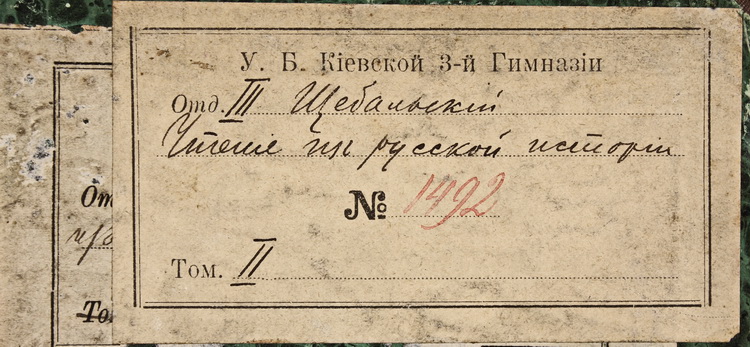 У. Б. Кіевской 3-й Гимназіи
Отд. III Щебальскій
Чтеніе изъ русской исторіи
№ 1492
Том. II
От
То